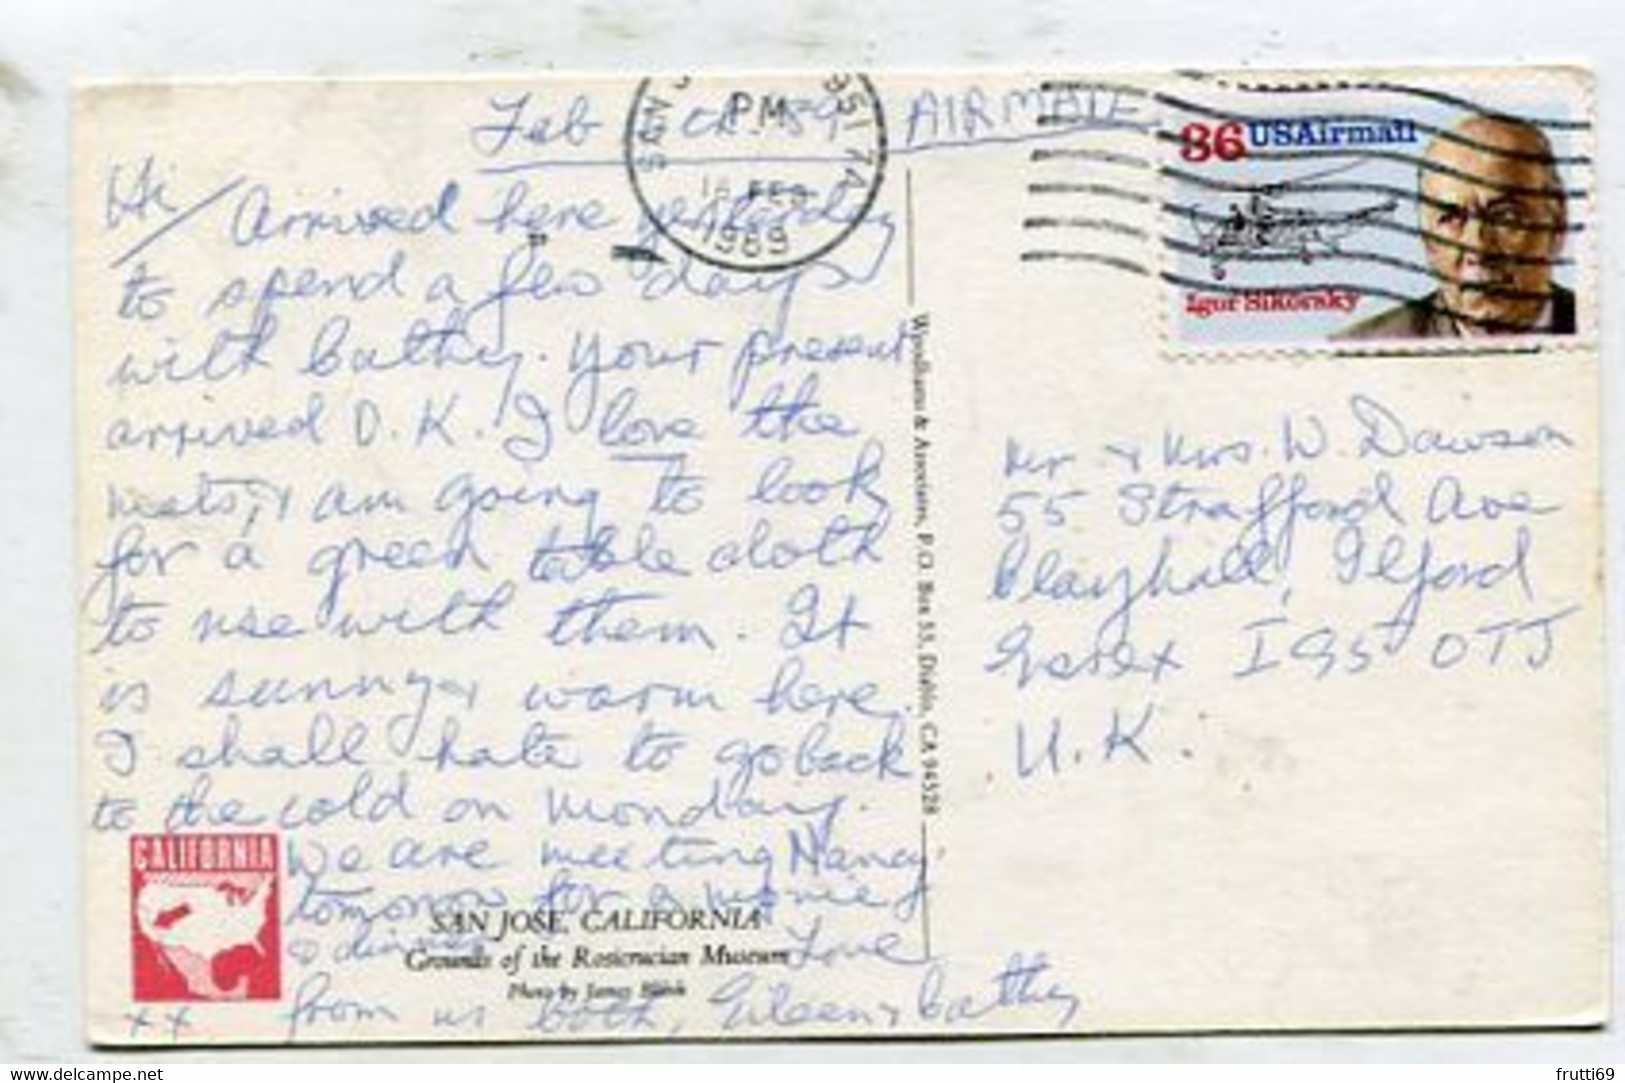 Feb 89 AIRMAIL
PM
FEB
1989
36 USAirmail
Igor Sikorsky
Hi / Arrived here yesterday
to spend a few days
with Cathy. Your present
arrived O.K. I love the
mats, & am going to look
for a green table cloth
to use with them. It
is sunny & warm here.
I shall hate to go back
to the cold on Monday.
We are meeting Nancy
tomorrow for a movie
& dinner Love
from us both, Eileen & Cathy
xx
CALIFORNIA
SAN JOSE, CALIFORNIA
Grounds of the Rosicrucian Museum
Photo by James Blank
Wyndham & Associates, P.O. Box 53, Diablo, CA 94528
Mr & Mrs. W. Dawson
55 Strafford Ave
Clayhall, Ilford
Essex IG5 OTJ
U.K.
delcampe.net
frutti69